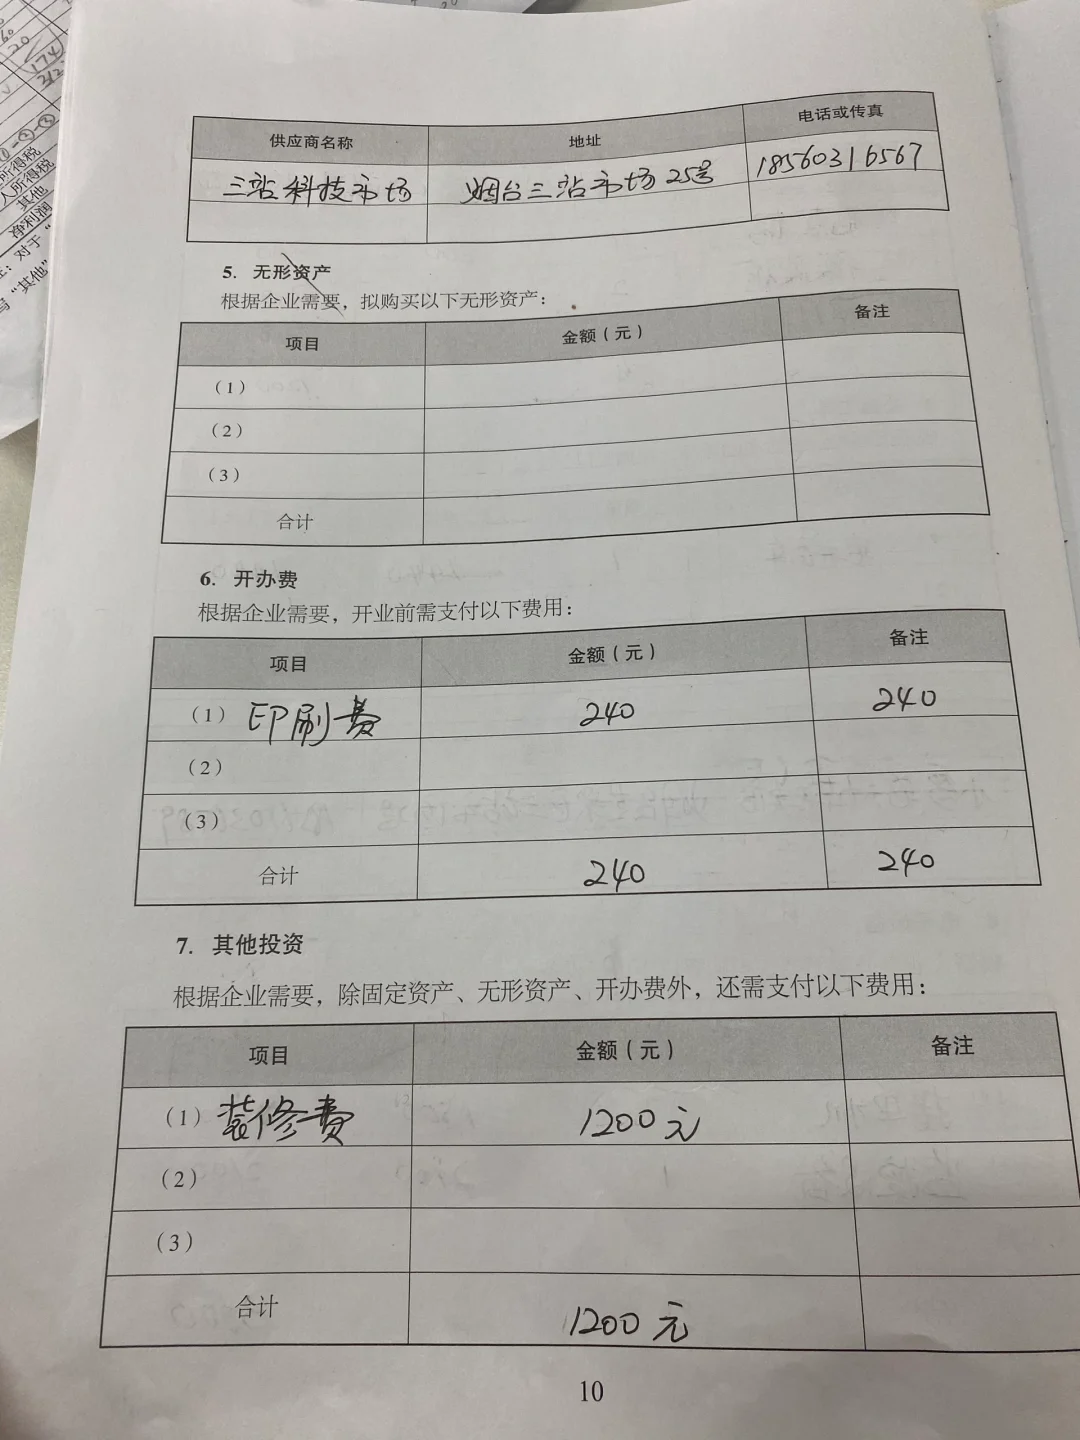 供应商名称 地址 电话或传真
三站科技市场 烟台三站市场25号 18560316567
5. 无形资产
根据企业需要，拟购买以下无形资产：
项目 金额（元） 备注
（1）
（2）
（3）
合计
6. 开办费
根据企业需要，开业前需支付以下费用：
项目 金额（元） 备注
（1）印刷费 240 240
（2）
（3）
合计 240 240
7. 其他投资
根据企业需要，除固定资产、无形资产、开办费外，还需支付以下费用：
项目 金额（元） 备注
（1）装修费 1200元
（2）
（3）
合计 1200元
10
所得税
人所得税
其他
净利润
对于“
“其他”